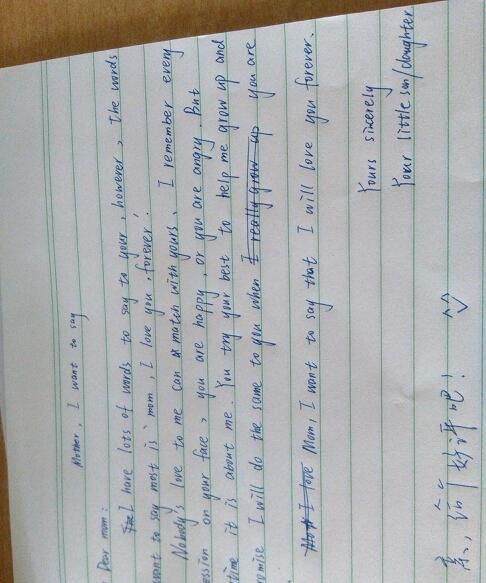 Mother, I want to say
Dear mom:
I have lots of words to say to your, however, the words
want to say most is "mom, I love you, forever."
Nobody's love to me can match with yours. I remember every
ession on your face, you are happy, or you are angry. But
time it is about me. You try your best to help me grow up and
omise I will do the same to you when I really grow up you are
Mom, I want to say that I will love you forever.
Yours sincerely
Your little son/daughter
亲,给个好评吧!